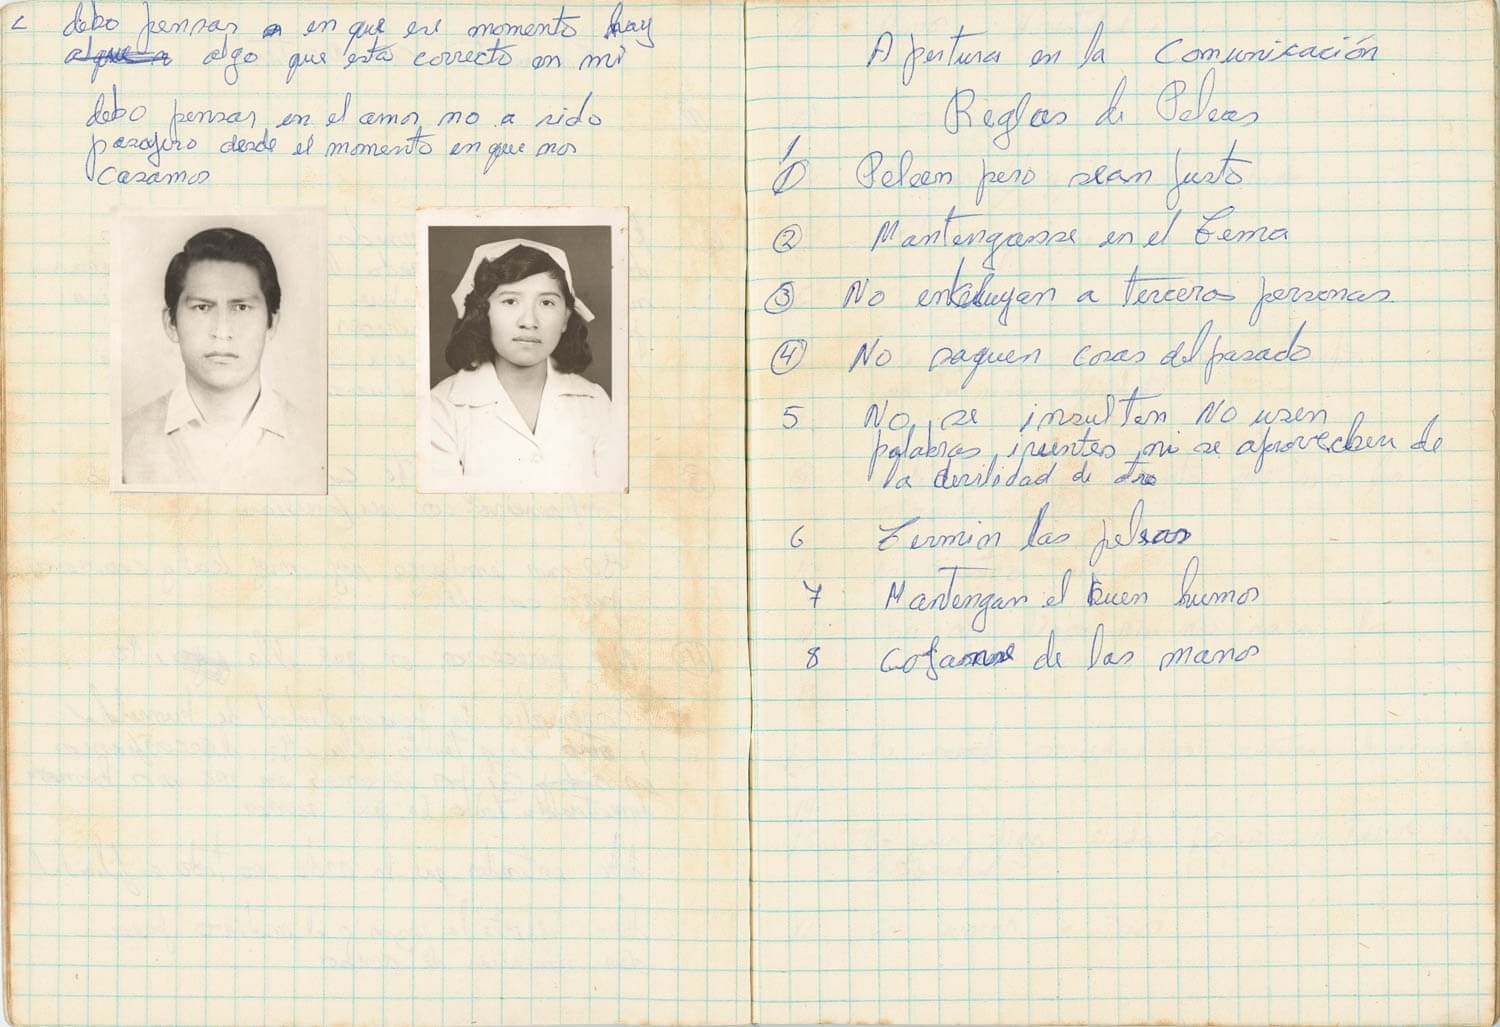 debo pensar en que ese momento hay
algo que está correcto en mí
debo pensar en el amor no a sido
pasajero desde el momento en que nos
casamos
Apertura en la Comunicación
Reglas de Peleas
1 Peleen pero sean justo
2 Mantenganse en el tema
3 No enkcluyan a terceros personas
4 No saquen cosas del pasado
5 No se insulten No usen
palabras irientes ni se aprovechen de
la devilidad de otro
6 Termin las peleas
7 Mantengan el buen humos
8 Cojanse de las manos